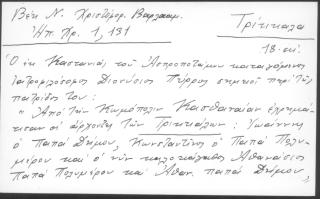 Βέη Ν. Χριστόφορ. Βαρλααμ.
Τρίκκαλα
Ἀπ. Πρ. 1, 131
18. αἰ.
Ὁ ἐκ Καστανιᾶς τοῦ Ἀσπροποτάμου καταγόμενος
ἰατροφιλόσοφος Διονύσιος Πύρρος σημειοῖ περὶ τῆς
πατρίδος του:
"Ἀπὸ τὴν Κωμόπολιν Καστανίαν ἐχρημά-
τισαν οἱ ἄρχοντες τῶν Τρικκάλων: Ἰωάννης
ὁ Παπᾶ Δήμου, Κωνσταντῖνος ὁ Παπᾶ Πολυ-
μέρου καὶ ὁ νῦν καλοκἀγαθος Ἀθανάσιος
Παπᾶ Πολυμέρου καὶ Ἀθαν. παπᾶ Δήμου,